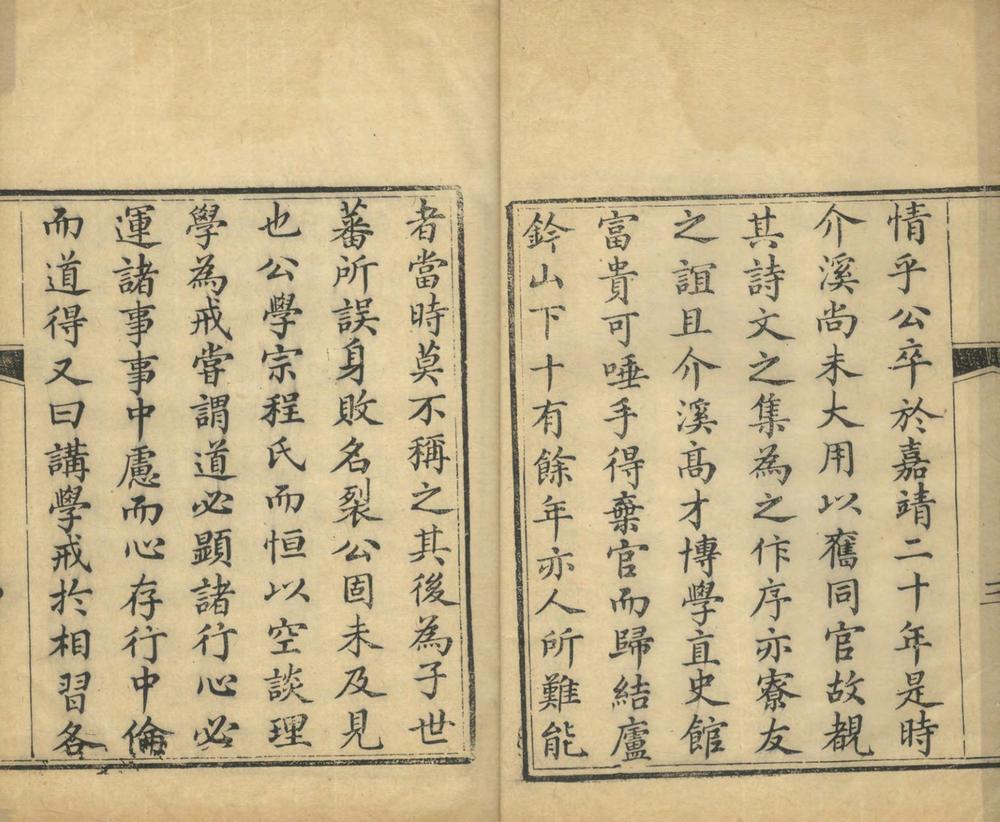 情乎公卒於嘉靖二十年是時
介溪尚未大用以舊同官故覩
其詩文之集為之作序亦寮友
之誼且介溪高才博學直史館
富貴可唾手得棄官而歸結廬
鈐山下十有餘年亦人所難能
者當時莫不稱之其後為子世
蕃所誤身敗名裂公固未及見
也公學宗程氏而恒以空談理
學為戒嘗謂道必顕諸行心必
運諸事事中慮而心存行中倫
而道得又曰講學戒於相習各
三